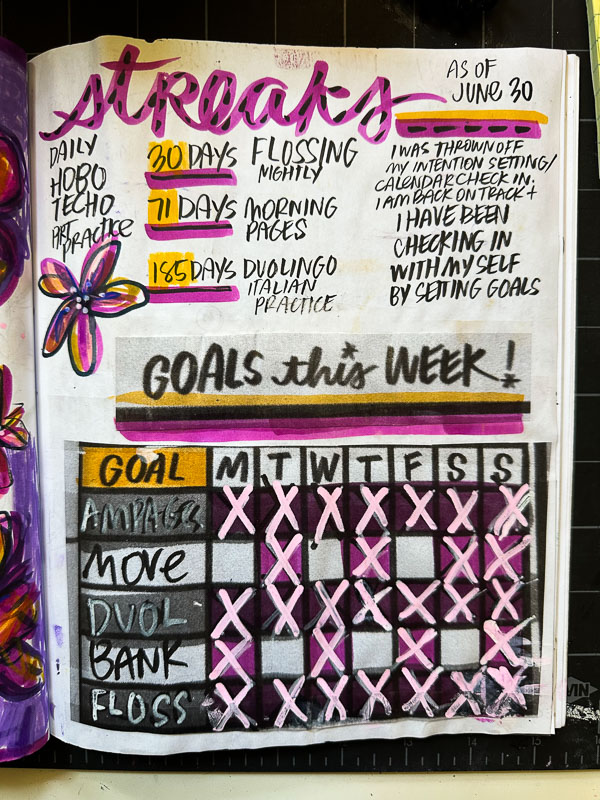 streaks
AS OF
JUNE 30
DAILY
HOBO
TECHO
ART
PRACTICE
30 DAYS FLOSSING
NIGHTLY
71 DAYS MORNING
PAGES
185 DAYS DUOLINGO
ITALIAN
PRACTICE
I WAS THROWN OFF
MY INTENTION SETTING/
CALENDAR CHECK IN.
I AM BACK ON TRACK +
I HAVE BEEN
CHECKING IN
WITH MY SELF
BY SETTING GOALS
GOALS this WEEK!
GOAL M T W T F S S
AMPAGES X X X X X X X
MOVE X X X X
DUOL X X X X X X X
BANK X X X X
FLOSS X X X X X X X
15